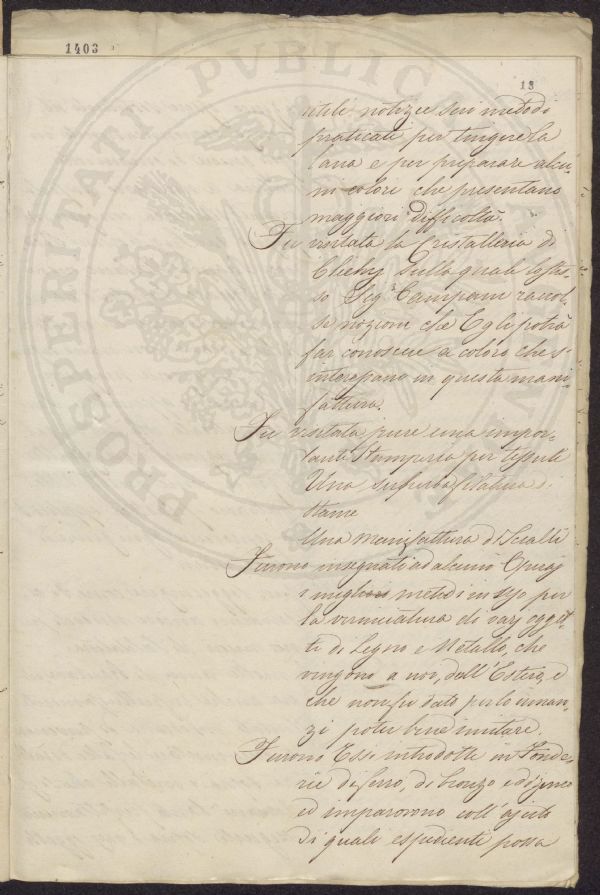 1403
13
utili notizie sui metodi
praticati per tingere la
lana e per preparare alcu-
ni colori che presentano
maggiori difficoltà.
Fu visitata la Cristalleria di
Clichy sulla quale lo stes-
so Sig.r Campani raccol-
se nozioni che Egli potrà
far conoscere a coloro che s'
interessano in questa mani-
fattura.
Fu visitata pure una impor-
tante Stamperia per tessuti
Una superba filatura di
stame
Una Manifattura di Scialli
Furono insegnati ad alcuni Operaj
i migliori metodi in uso per
la verniciatura di varj ogget-
ti di Legno e Metallo, che
vengono a noi dall'Estero, e
che non fu dato per lo innan-
zi poter bene imitare.
Furono Essi introdotti in Fonde-
rie di ferro, di bronzo e di zinco
ed impararono coll'ajuto
di quali espedienti possa
PROSPERITATI PUBLICAE